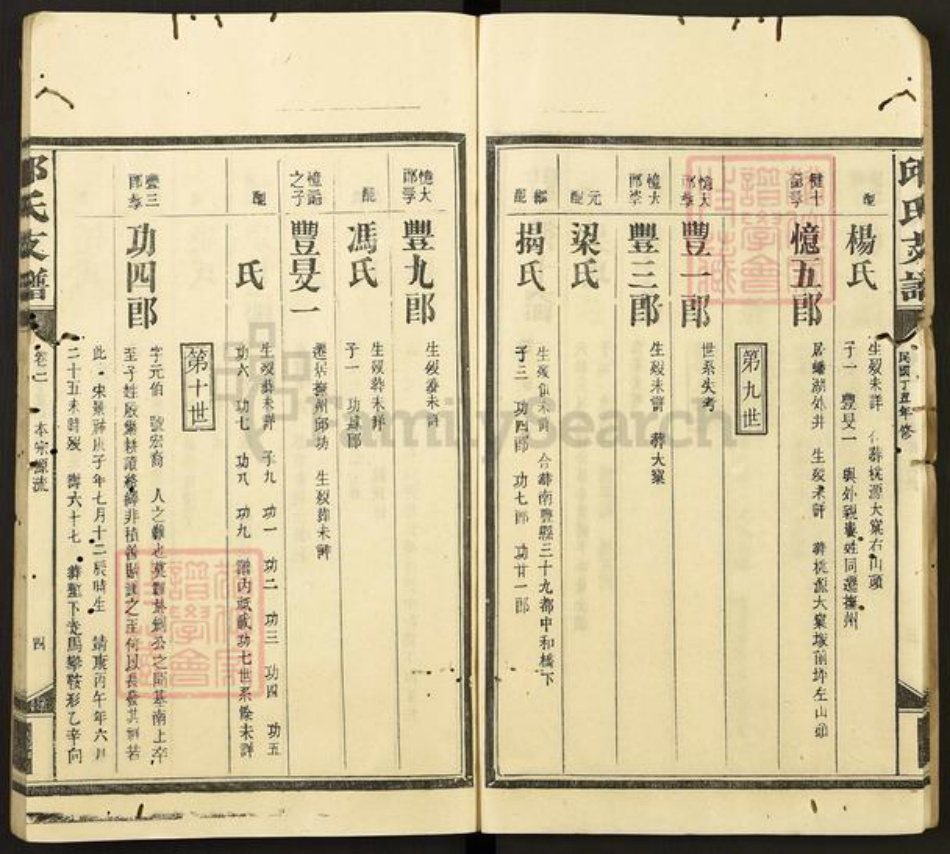 邱氏支譜
民國丁丑年修
配
楊氏
生歿未詳 合葬桃源大窠右山頭
子一 豐旻一 與外親龔姓同遷撫州
健十
憶五郎
居蟠湖外井 生歿未詳 葬桃源大窠塚前埠左山頭
第九世
憶大
豐一郎
世系失考
憶大
豐三郎
生歿未詳 葬大窠
元配
梁氏
繼配
揭氏
生歿俱未詳 合葬南豐縣三十九都中和橋下
子三 功四郎 功七郎 功廿一郎
憶大
豐九郎
生歿葬未詳
配
馮氏
生歿葬未詳
子一
之子
豐旻一
遷居撫州邱功 生歿葬未詳
配
氏
生歿葬未詳 子九 功一 功二 功三 功四 功五
功六 功七 功八 功九 譜內祇載功七世系餘未詳
第十世
豐三
功四郎
字元伯 號宏裔 人之難也莫難於創公之開基南上卒
至子姓殷繁耕讀
此 宋景祐庚子年七月十二辰時生 靖康丙午年六月
二十五未時歿 壽六十七 葬 下 馬攀鞍形乙辛向
邱氏支譜
卷二 本宗源流
四
FamilySearch